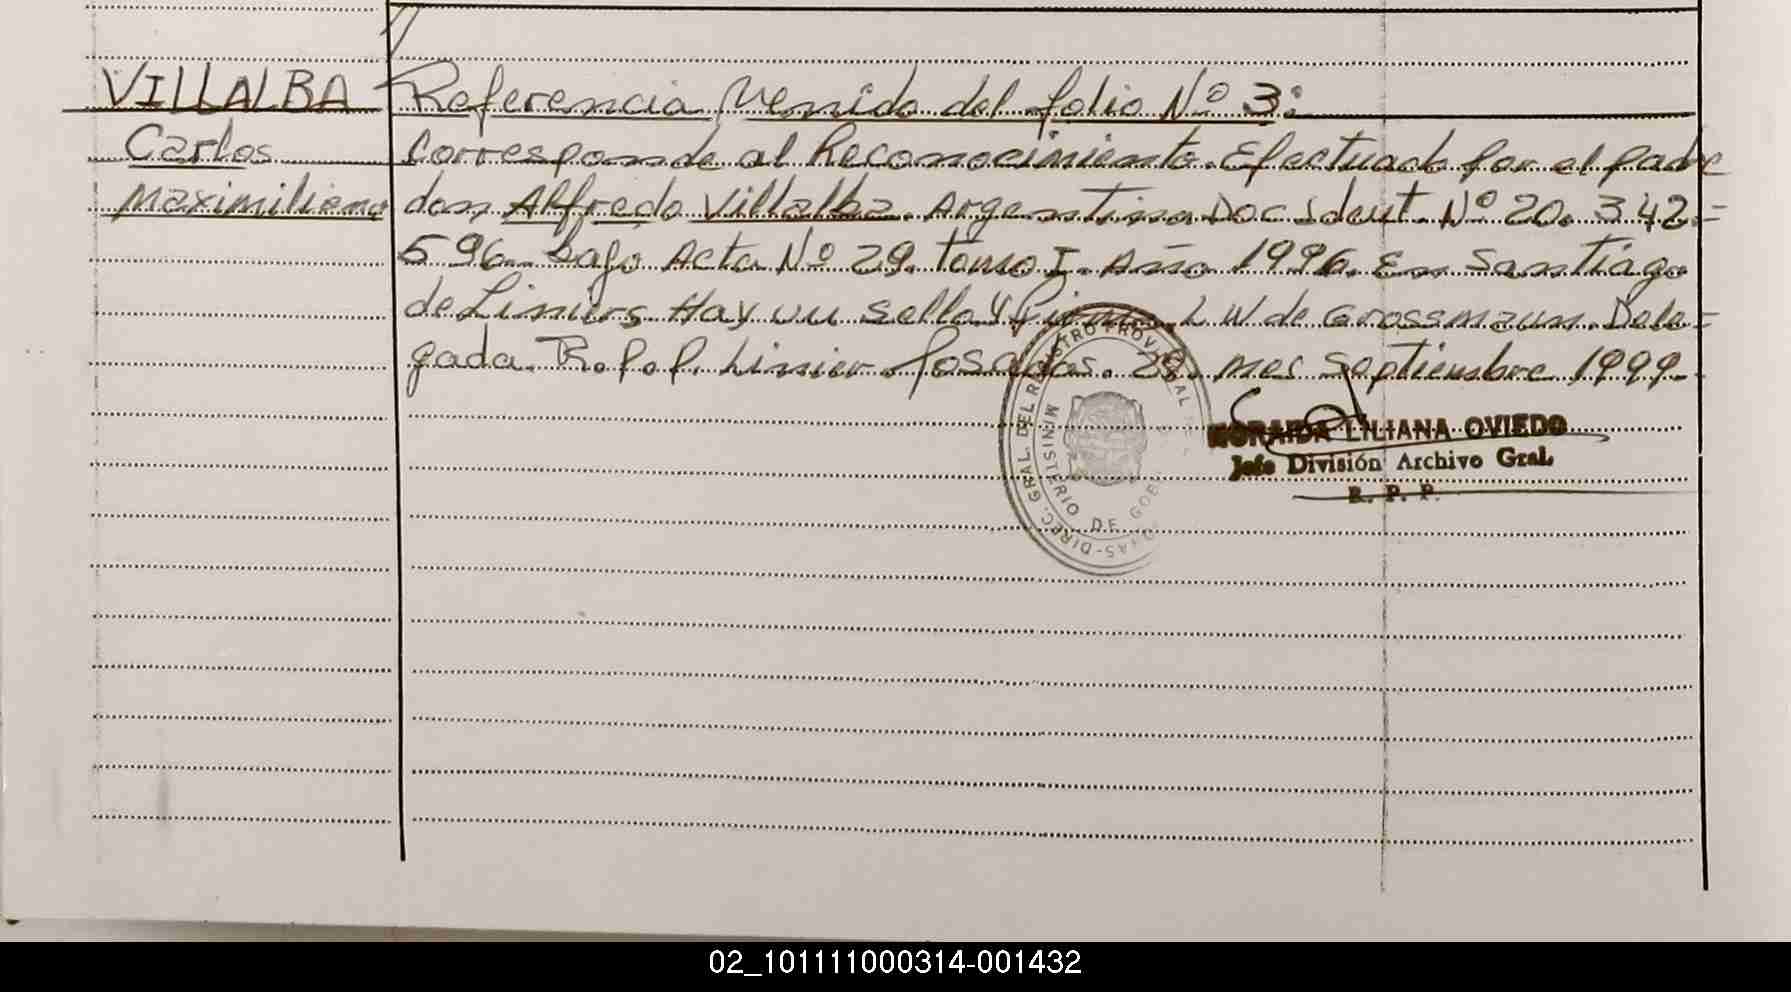 VILLALBA Referencia Venido del folio Nº 3:
Carlos Corresponde al Reconocimiento. Efectuado por el padre
Maximiliano don Alfredo Villalba. Argentino Doc Ident. Nº 20. 342=
596. bajo Acta Nº 29. tomo I. Año 1996. En Santiago
de Liniers Hay un sello y firma. L W de Grossmann. Dele=
gada. R.P.P. Linier. Posadas. 28. mes Septiembre 1999.-
DIREC. GRAL. DEL REGISTRO PROVINCIAL
MINISTERIO DE GOB
LILIANA OVIEDO
Jefe División Archivo Gral.
R. P. P.
02_101111000314-001432